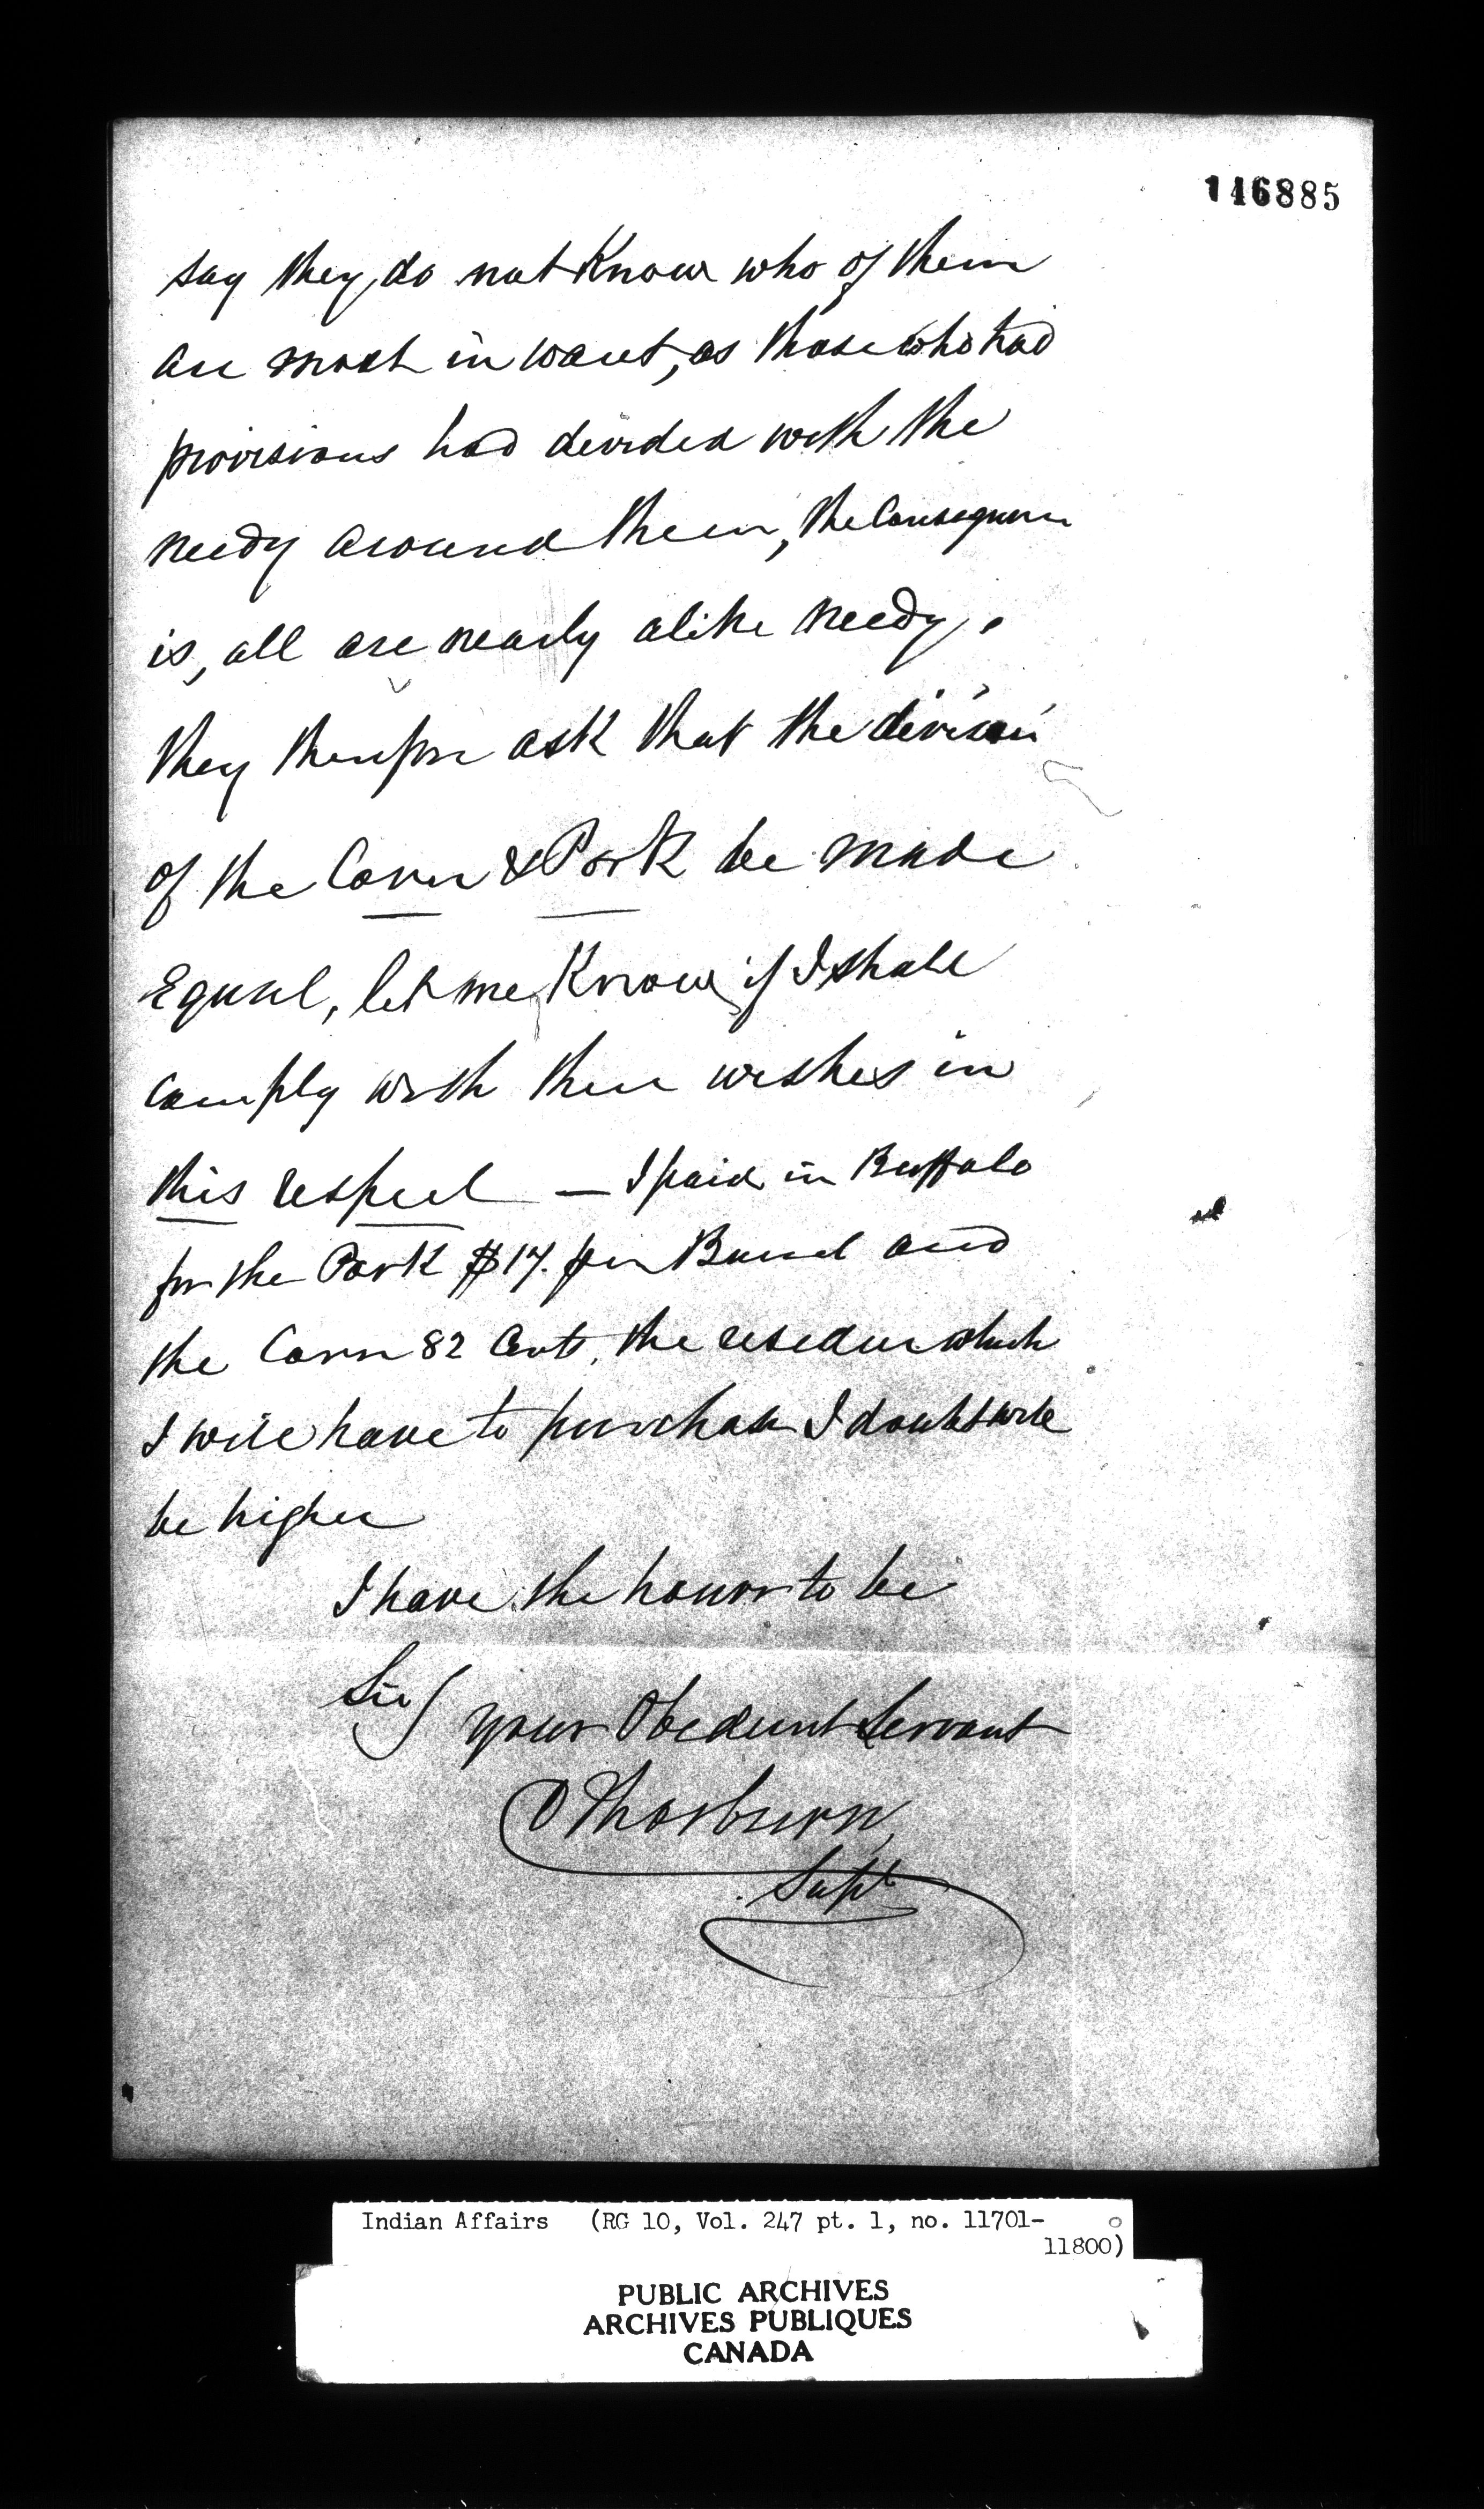 146885
say they do not Know who of them
are most in want, as those who had
provisions had divided with the
needy around them, the Consequence
is, all are nearly alike needy.
they therefore ask that the division
of the Corn & Pork be made
Equal, let me Know if I shall
comply with their wishes in
this respect — I paid in Buffalo
for the Pork $17. per Barrel and
the Corn 82 Cents, the residue which
I will have to purchase I doubt will
be higher
I have the honor to be
Sir
your Obedient Servant
D Thorburn
Supt
Indian Affairs (RG 10, Vol. 247 pt. 1, no. 11701-
11800)
PUBLIC ARCHIVES
ARCHIVES PUBLIQUES
CANADA